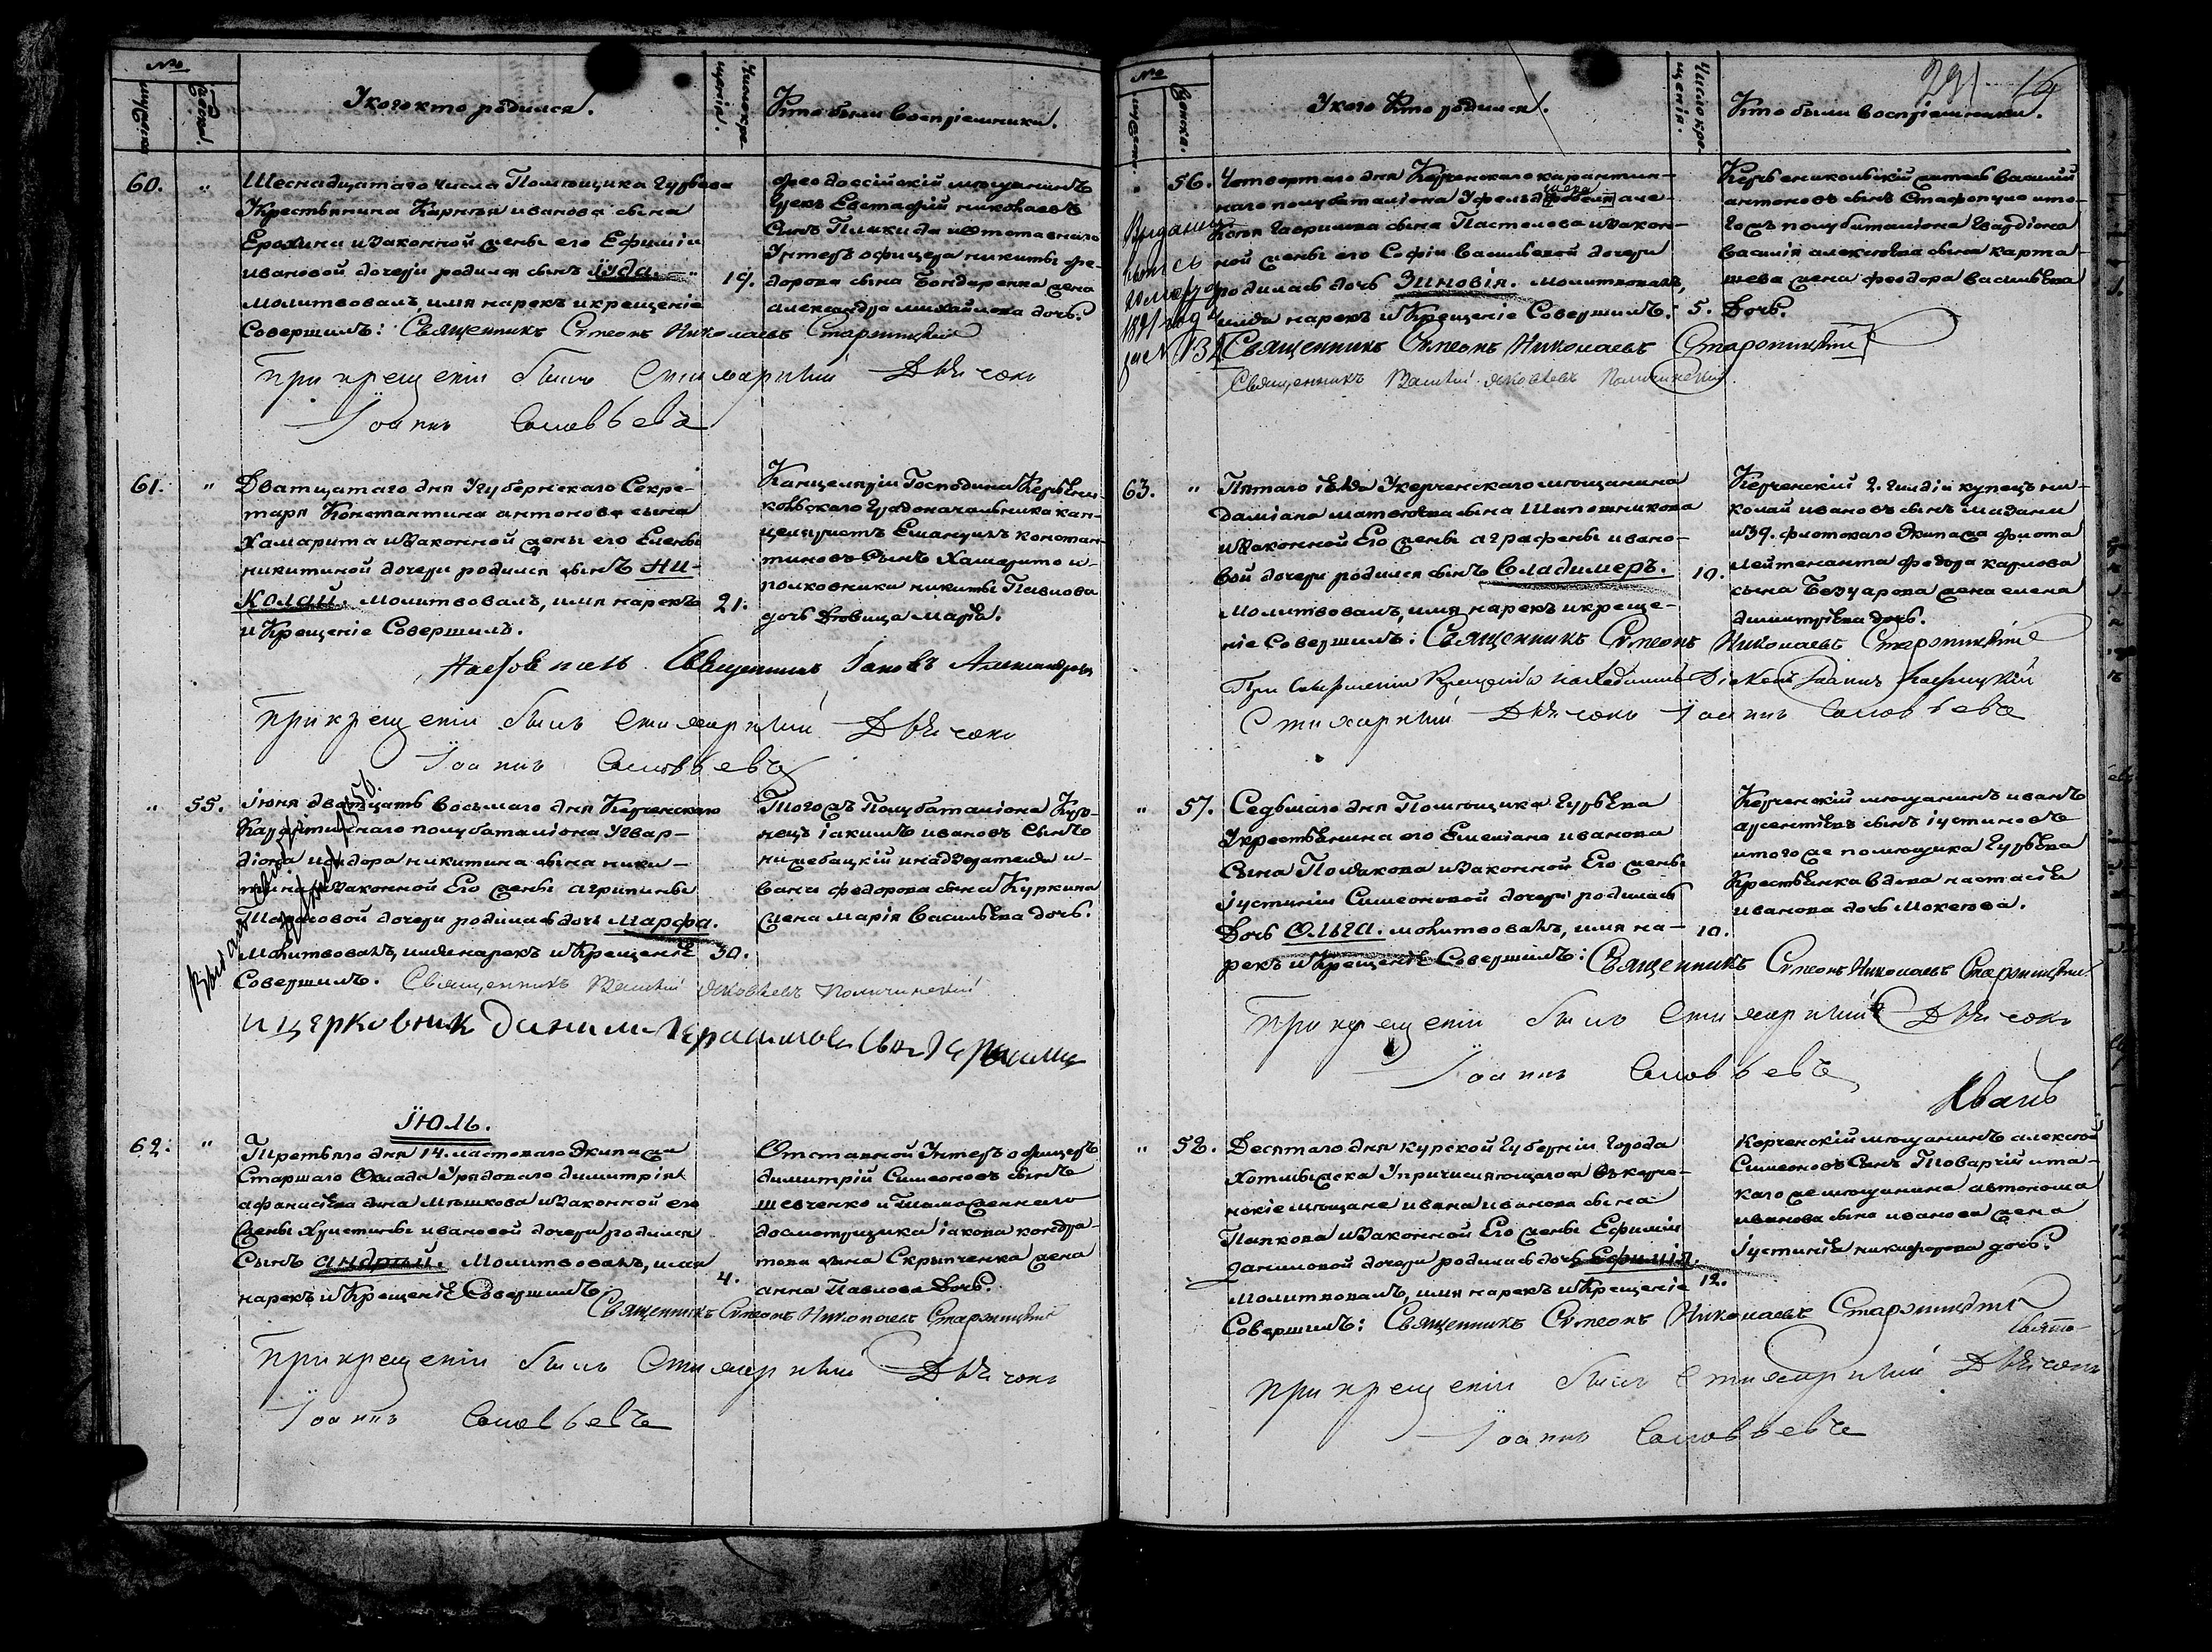 №
Мужеска
Женска.
У кого кто родился.
Число кре-
щенія.
Кто были воспріемники.
60.
"
Шеснадцатаго числа Помющика Гурьева
Крестьянина Карнѣя иванова сына
Ерохина и законной жены его Ефиміи
ивановой дочери родился сынъ Іуда.
молитвовалъ, имя нарекъ и крещеніе
Совершилъ: Священникъ Симеонъ Николаевъ
19.
Феодосійскій мющанинъ
Грекъ Евстафій николаевъ
Сынъ Плакида и отставнаго
Унтеръ офицера никиты Фе-
дорова сына Бондаренка жена
александра михайлова дочь.
При крещеніи былъ Стихарный Дьячокъ
Іоаннъ Соловьевъ
61.
"
Дватцатаго дня У губернскаго Секре-
таря Константина антонова сына
Хамарита и законной жены его Елены
никитиной дочери родился сынъ Ни-
колай. молитвовалъ, имя нарекъ
и Крещеніе Совершилъ.
21.
Канцеляріи Господина Керчьени-
кольскаго Градоначальника кан-
целяристъ Емануилъ констан-
тиновъ Сынъ Хамарито и
полковника никиты Павлова
дочь Дювица Марія.
Священникъ Іаковъ Александровъ
При крещеніи былъ Стихарный Дьячокъ
Іоаннъ Соловьевъ
"
55.
Іюня дватцать восьмаго дня Керченскаго
Карантиннаго полубаталіона У Гвар-
діона исидора никитина сына ники-
тина и законной Его жены агрипины
дочери родилась дочь Марфа.
Молитвовалъ, имя нарекъ и Крещеніе
Совершилъ. Священникъ Василій Яковлевъ
30.
Тогожъ Полубаталіона Кузь-
нецъ іакимъ ивановъ Сынъ
и надзирателя и-
вана федорова сына Куркина
жена Марія Васильева дочь.
и церковник данило Герасимовъ сын
Іюль.
62.
"
Третьяго дня 14. ластоваго Экипажа
Старшаго Оклада У рядоваго димитрія
афанасьева сына Мышкова и законной его
жены Христины ивановой дочери родился
Сынъ андрей. Молитвовалъ, имя
нарекъ и Крещеніе Совершилъ.
4.
Отставной Унтеръ офицеръ
димитрій Симеоновъ сынъ
шевченко и Таможеннаго
досмотрщика іакова кондра-
това сына Скрыпченка жена
анна Павлова Дочь.
Священникъ Симеонъ Николаевъ
При крещеніи былъ Стихарный Дьячокъ
Іоаннъ Соловьевъ
№
Женска.
У кого Кто родился.
Число кре-
щенія.
Кто были воспріемники.
56.
Четвертаго дня Керченскаго карантин-
наго полубаталіона У фельдфебеля але-
Гаврилова сына Пастелова и закон-
ной жены его Софіи Васильевой дочери
родилась дочь Зиновія. Молитвовалъ,
имя нарекъ и Крещеніе Совершилъ.
5.
Керчьеникольскій житель Василій
антоновъ сынъ и то-
гожъ полубаталіона Гвардіона
Василія алексѣева сына карта-
шева жена феодора васильева
Дочь.
Священникъ Симеонъ Николаевъ
Священникъ Василій Яковлевъ
63.
"
Пятаго іюля У керченскаго мющанина
даміана матвѣева сына Шапошникова
и законной Его жены аграфены ивано-
вой дочери родился сынъ Владимеръ.
Молитвовалъ, имя нарекъ и креще-
ніе Совершилъ: Священникъ Симеонъ Николаевъ
10.
Керченскій 2. гилдіи купецъ ни-
колай ивановъ сынъ
и 39. флотскаго Экипажа флота
лейтенанта федора карлова
сына жена елена
димитріева дочь.
При Совершеніи Крещенія находились Діаконъ Іоаннъ
Стихарный Дьячокъ Іоаннъ Соловьевъ
"
57.
Седьмаго дня Помющика Гурьева
У крестьянина его Емеліана иванова
Сына Полякова и законной Его жены
іустиніи Симеоновой дочери родилась
Дочь Ольга. молитвовалъ, имя на-
рекъ и Крещеніе Совершилъ: Священникъ Симеонъ Николаевъ
10.
Керченскій мющанинъ иванъ
арсентьевъ сынъ іустиновъ
и тогоже помющика Гурьева
Крестьянка вдова настасія
иванова дочь Мокеева.
При крещеніи былъ Стихарный Дьячокъ
Іоаннъ Соловьевъ
Иванъ
"
58.
Десятаго дня курской Губерніи Города
Хотмыжска У причисляющагося въ керче-
нскіе мющане ивана иванова сына
Папкова и законной Его жены Ефиміи
даниловой дочери родилась дочь Ефимія.
Молитвовалъ, имя нарекъ и Крещеніе
Совершилъ: Священникъ Симеонъ Николаевъ
12.
Керченскій мющанинъ алексѣй
Симеоновъ Сынъ и та-
кагоже мющанина автонома
иванова сына иванова жена
іустинія никифорова дочь.
При крещеніи былъ Стихарный Дьячокъ
Іоаннъ Соловьевъ